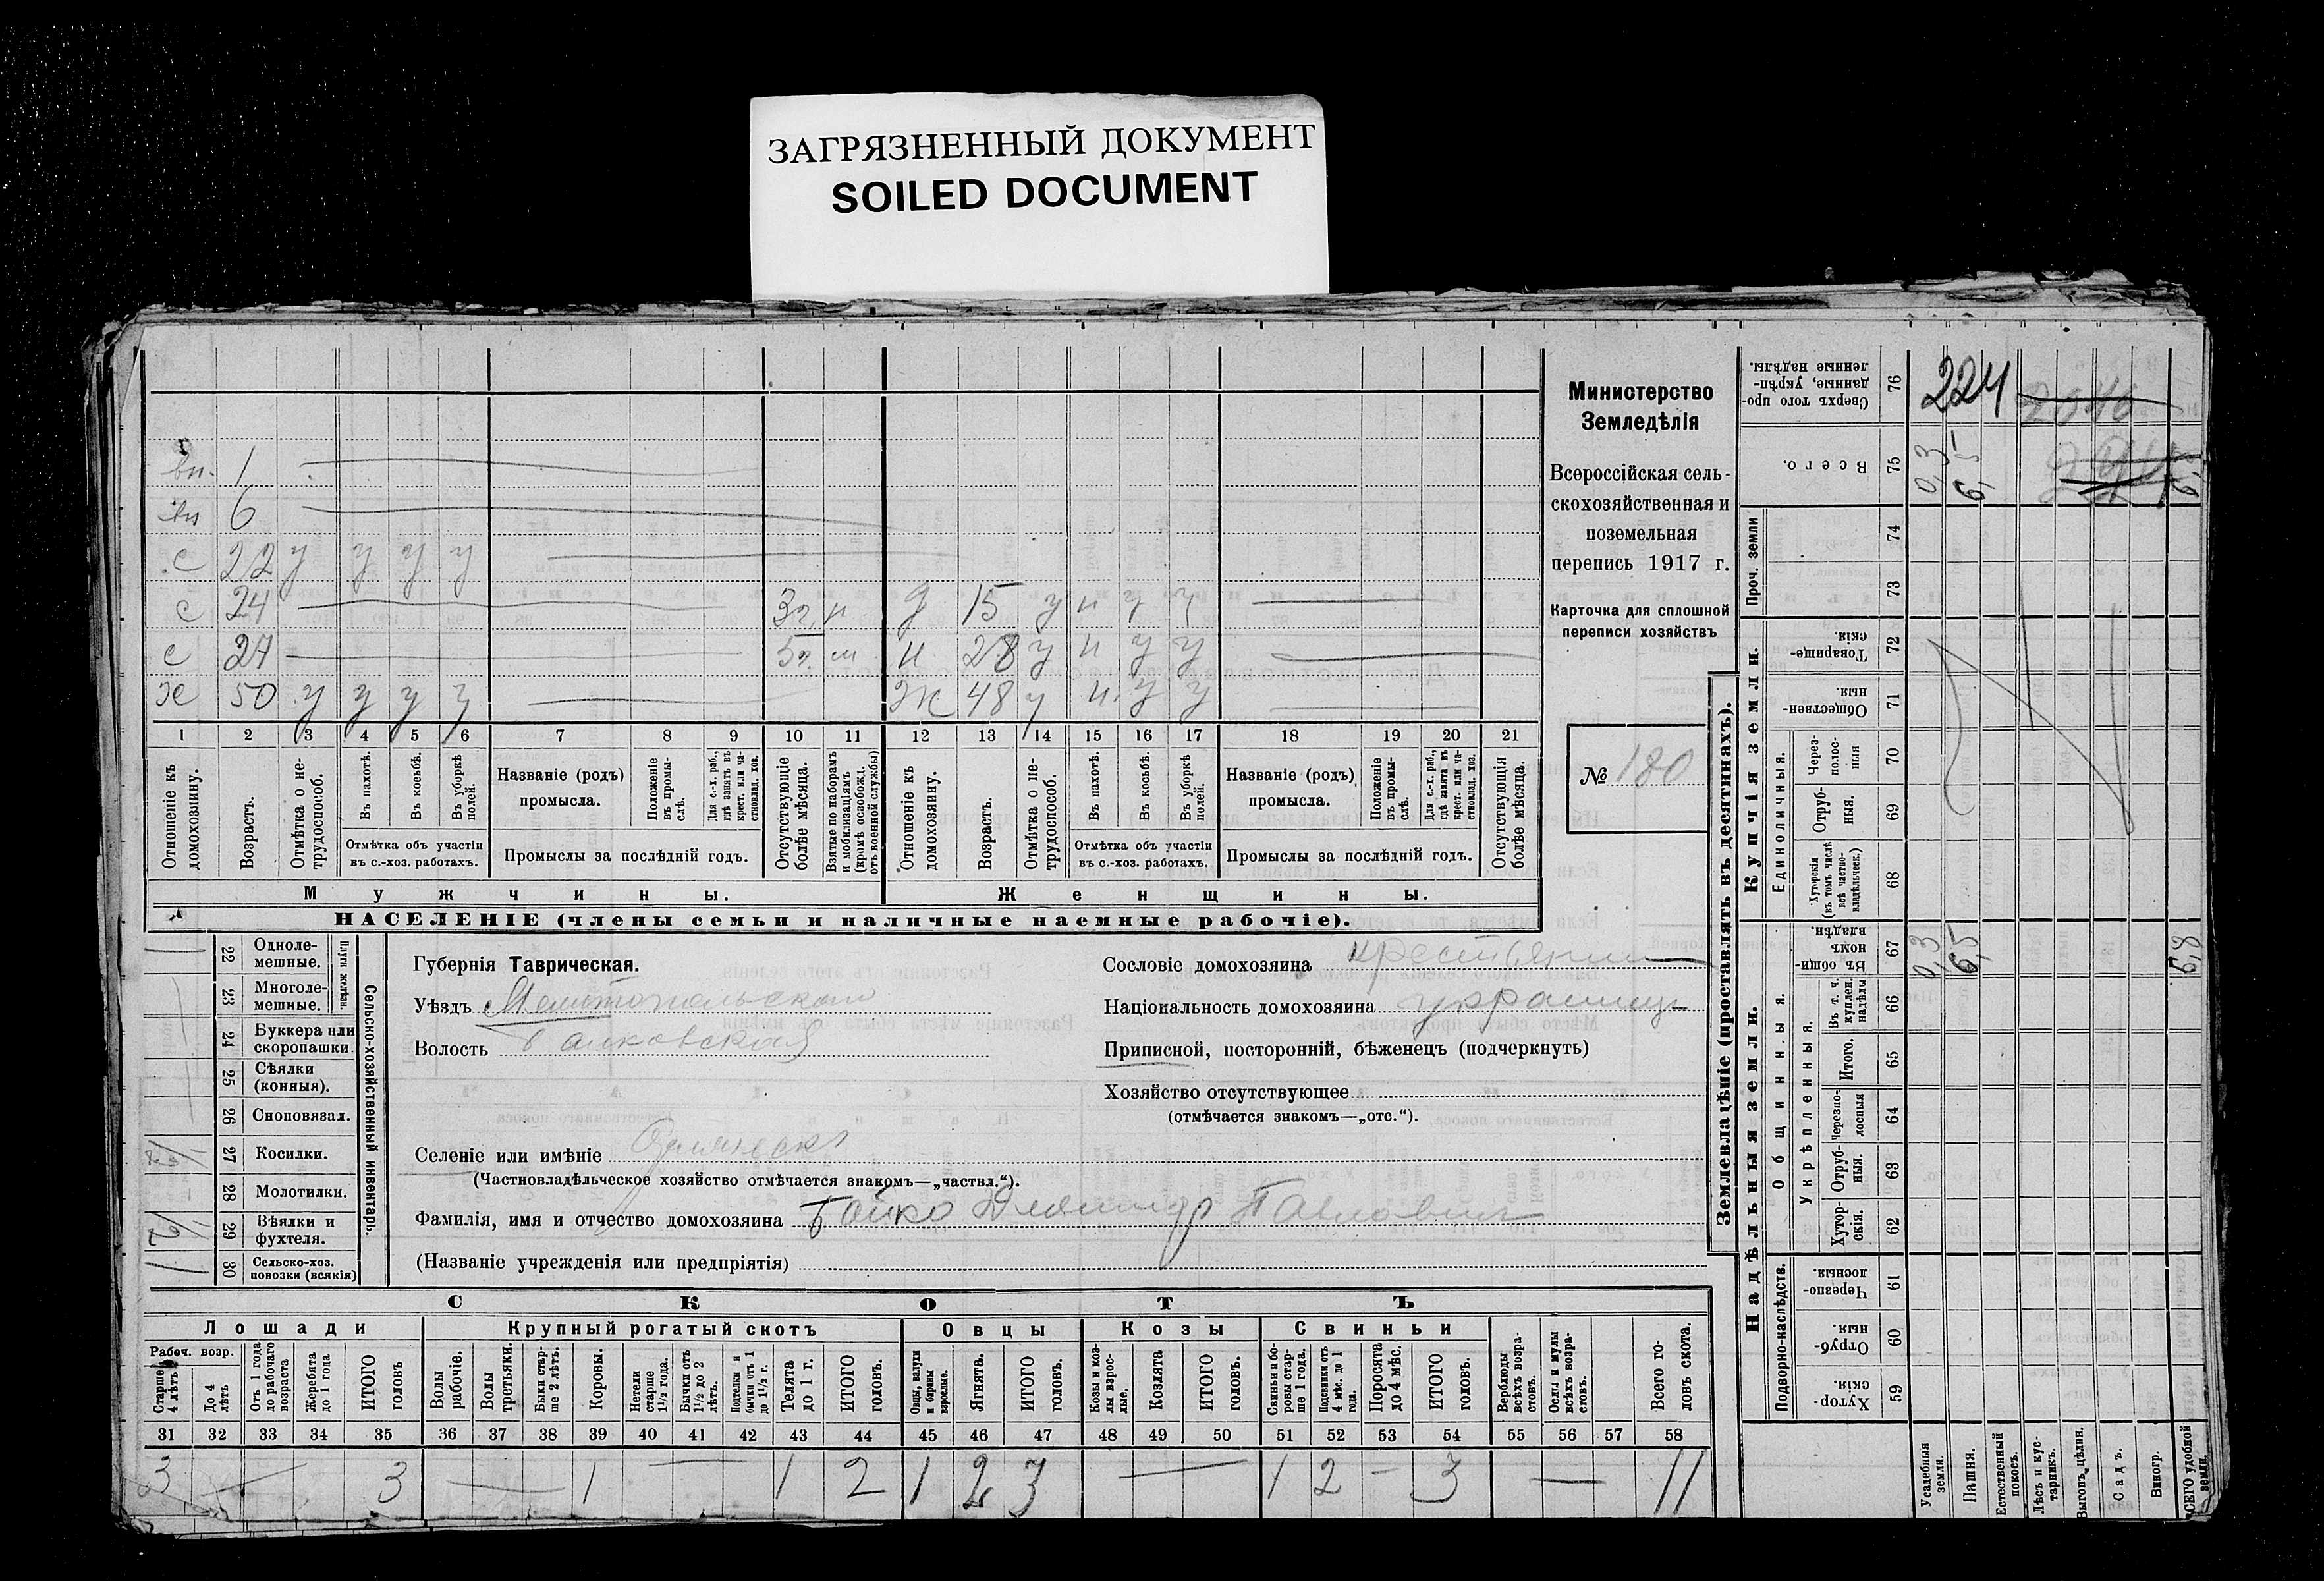 ЗАГРЯЗНЕННЫЙ ДОКУМЕНТ
SOILED DOCUMENT
вн. 1
вн 6
с 22 у у у у
с 24 3г. н д 15 у н у у
с 27 5г. м н 28 у н у у
х 50 у у у у ж 48 у н у у
1 2 3 4 5 6 7 8 9 10 11 12 13 14 15 16 17 18 19 20 21
Отношеніе къ домохозяину.
Возрастъ.
Отмѣтка о нетрудоспособ.
Въ пахотѣ.
Въ косьбѣ.
Въ уборкѣ полей.
Отмѣтка объ участіи въ с.-хоз. работахъ.
Названіе (родъ) промысла.
Положеніе въ промыслѣ.
Для с.-х. раб., гдѣ занятъ въ крест. или частновлад. хоз.
Промыслы за послѣдній годъ.
Отсутствующіе болѣе мѣсяца.
Взятые по наборамъ и мобилизаціямъ (кромѣ освобожд. отъ военной службы)
Отношеніе къ домохозяину.
Возрастъ.
Отмѣтка о нетрудоспособ.
Въ пахотѣ.
Въ косьбѣ.
Въ уборкѣ полей.
Отмѣтка объ участіи въ с.-хоз. работахъ.
Названіе (родъ) промысла.
Положеніе въ промыслѣ.
Для с.-х. раб., гдѣ занята въ крест. или частновлад. хоз.
Промыслы за послѣдній годъ.
Отсутствующія болѣе мѣсяца.
Мужчины.
Женщины.
НАСЕЛЕНІЕ (члены семьи и наличные наемные рабочіе).
Министерство
Земледѣлія
Всероссійская сель-
скохозяйственная и
поземельная
перепись 1917 г.
Карточка для сплошной
переписи хозяйствъ
№ 180
22 Одноле-мешные.
23 Многоле-мешные.
Плуги желѣзн.
24 Буккера или скоропашки.
25 Сѣялки (конныя).
26 Сноповязал.
27 Косилки.
28 Молотилки.
29 Вѣялки и фухтеля.
30 Сельско-хоз. повозки (всякія)
Сельско-хозяйственный инвентарь.
Губернія Таврическая.
Уѣздъ Мелитопольскаго
Волость
Селеніе или имѣніе
(Частновладѣльческое хозяйство отмѣчается знакомъ—„частвл.“).
Фамилія, имя и отчество домохозяина Бойко Александр Павлович
(Названіе учрежденія или предпріятія)
Сословіе домохозяина крестьянин
Національность домохозяина украинец
Приписной, посторонній, бѣженецъ (подчеркнуть)
Хозяйство отсутствующее
(отмѣчается знакомъ—„отс.“).
СКОТЪ
Лошади Крупный рогатый скотъ Овцы Козы Свиньи
Рабоч. возр.
Старше 4 лѣтъ
До 4 лѣтъ
Отъ 1 года до рабочаго возраста
Жеребята до 1 года
ИТОГО головъ
Волы рабочіе.
Волы третьяки.
Быки старше 2 лѣтъ.
Коровы.
Нетели старше 1½ года.
Бычки отъ 1½ до 2 лѣтъ.
Подтелки и бычки отъ 1 до 1½ г.
Телята до 1 г.
ИТОГО головъ.
Овцы, валухи и бараны взрослые.
Ягнята.
ИТОГО головъ.
Козы и козлы взрослые.
Козлята
ИТОГО головъ.
Свиньи и боровы старше 1 года.
Подсвинки отъ 4 мѣс. до 1 года.
Поросята до 4 мѣс.
ИТОГО головъ.
Верблюды всѣхъ возрастовъ.
Ослы и мулы всѣхъ возрастовъ.
Всего головъ скота.
31 32 33 34 35 36 37 38 39 40 41 42 43 44 45 46 47 48 49 50 51 52 53 54 55 56 57 58
3 — 3 — 1 — 1 2 1 2 3 — 1 2 - 3 — 11
Землевладѣніе (проставлять въ десятинахъ).
Надѣльныя земли.
Купчія земли.
Проч. земли
Подворно-наслѣдств.
Общинныя.
Укрѣпленныя.
Единоличныя.
Сверхъ того проданные, укрѣпленные надѣлы. 76 224
Всего. 75 0,3 6,5
74
73
Товарищескія. 72
Общественныя. 71
Черезполосныя 70
Отрубныя. 69
Хуторскія (въ томъ числѣ всѣ частновладѣльческ.) 68
Въ общинномъ владѣн. 67 0,3 6,5 6,8
Въ т. ч. куплен. надѣлы 66
Итого. 65
Черезполосныя 64
Отрубныя. 63
Хуторскія. 62
Черезполосныя. 61
Отрубныя. 60
Хуторскія 59
Усадебныя земли.
Пашня.
Естественный покосъ.
Лѣсъ и кустарникъ.
Выгонъ, цѣлин.
Садъ.
Виногр.
ВСЕГО удобной земли.